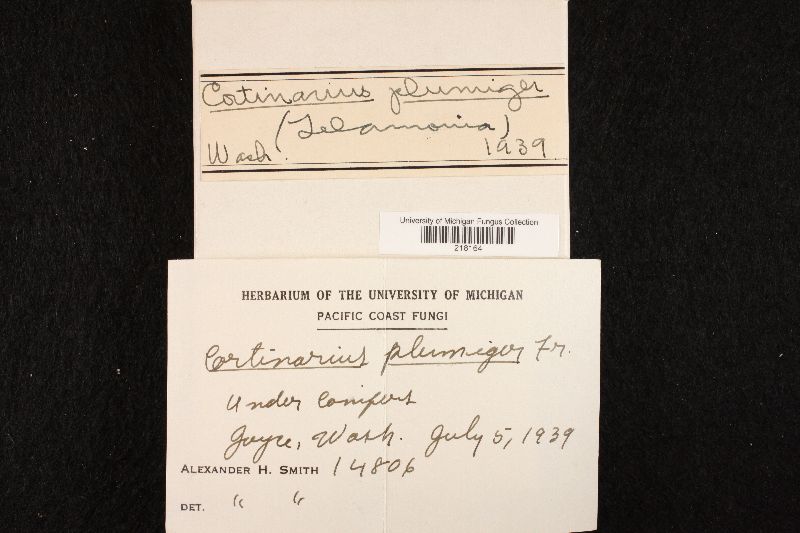 Cortinarius plumiger
(Telamonia)
Wash. 1939
University of Michigan Fungus Collection
218164
HERBARIUM OF THE UNIVERSITY OF MICHIGAN
PACIFIC COAST FUNGI
Cortinarius plumiger Fr.
Under conifers
Joyce, Wash. July 5, 1939
ALEXANDER H. SMITH 14806
DET. " "